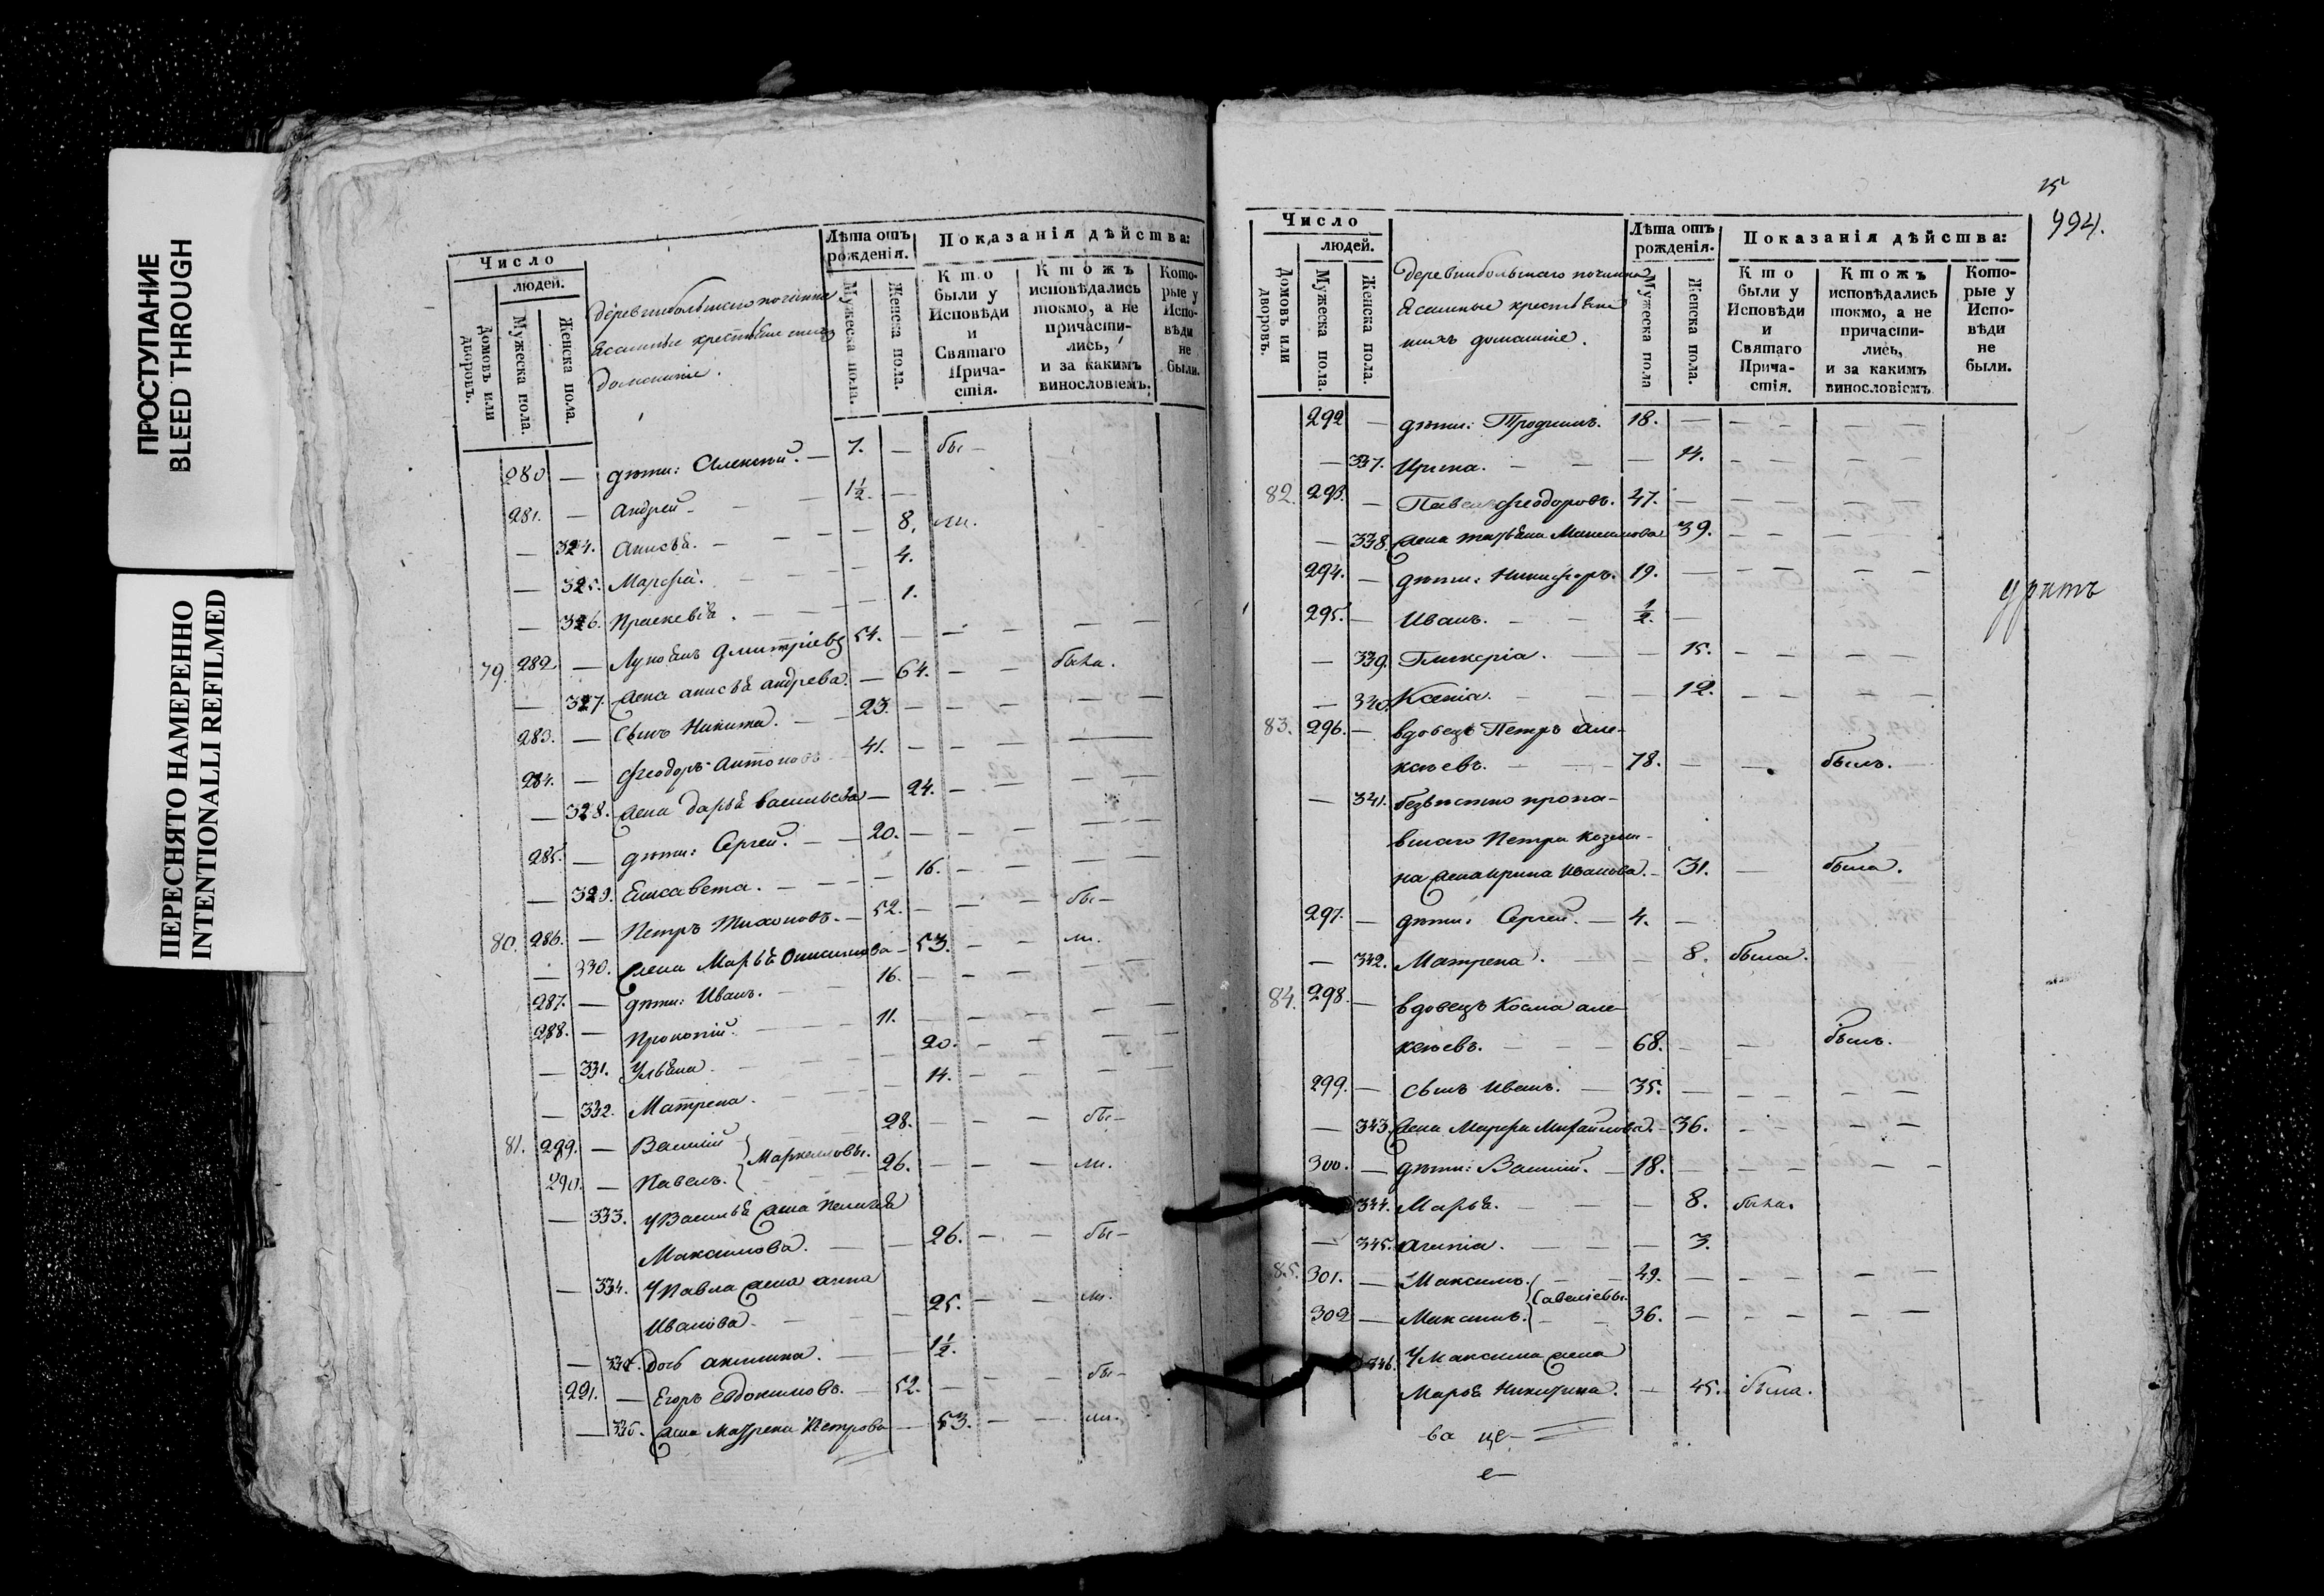 ПРОСТУПАНИЕ
BLEED THROUGH
ПЕРЕСНЯТО НАМЕРЕННО
INTENTIONALLI REFILMED
Число
людей.
Домовъ или дворовъ.
Мужеска пола.
Женска пола.
Деревни большаго починка
Ясашные крестьяне и ихъ
домашніе.
Лѣта отъ рожденія.
Мужеска пола.
Женска пола.
Показанія дѣйства:
Кто были у Исповѣди и Святаго Прича-стія.
Ктожъ исповѣдались токмо, а не причасти-лись, и за какимъ винословіемъ.
Кото-рые у Испо-вѣди не были.
280 — дѣти: Алексѣй. — 7. — бы —
281. — Андрей — 1½. —
— 324. Анисья. — — 8. ли.
— 325. Марфа. — — 4.
— 326. Праскевія. — — 1.
79. 282. — Лукьянъ Дмитріевъ 54. — — — — —
— 327. жена анисья андреева. — 64. — — была.
283. — сынъ Никита. — 23. — — — — —
284. — Феодоръ Антоновъ 41. — — — —
— 328. жена дарья васильева — 24. — — — —
285. — дѣти: Сергей. — 20. — — — — —
— 329. Елисавета. — — 16. — — — —
80. 286. — Петръ Тихоновъ. — 52. — — — бы —
— 330. жена Марья Онисимова — 53. — — ли.
287. — дѣти: Иванъ. — 16. — — — —
288. — Прокопій. — 11. — — — — —
— 331. Ульяна. — — 20. — — — —
— 332. Матрена. — — 14. — — — —
81. 289. — Василій } Маркелловы. 28. — — — бы —
290. — Павелъ. } 26. — — — ли.
— 333. У Василья жена Пелагея
Максимова. — — 26. — — бы —
— 334. У Павла жена анна
Иванова. — — 25. — — ли.
— 335. дочь акилина. — — 1½.
291. — Егоръ Евдокимовъ. — 52. — — — бы —
— 336. жена Матрена Петрова — 53. — — ли.
15
994.
Число
людей.
Домовъ или дворовъ.
Мужеска пола.
Женска пола.
Деревни большаго починка
Ясашные крестьяне
и ихъ домашніе.
Лѣта отъ рожденія.
Мужеска пола
Женска пола.
Показанія дѣйства:
Кто были у Исповѣди и Святаго Прича-стія.
Ктожъ исповѣдались токмо, а не причасти-лись, и за какимъ винословіемъ
Кото-рые у Испо-вѣди не были.
292 — дѣти: Трофимъ. 18. — — — — —
— 337. Ирина. — — — 14. — — — —
82. 293. — Павелъ Феодоровъ. 47. — — — — —
— 338. жена татьяна Максимова 39. — — — —
294. — дѣти: Никифоръ. 19. — — — — —
295. — Иванъ. — ½. —
— 339. Гликерія. — — 15. — — — —
— 340. Ксенія. — — 12. — — — —
83. 296. — вдовецъ Петръ але-
ксѣевъ. — — 78. — — былъ.
— 341. безвѣстно пропа-
вшаго Петра Козми-
на жена ирина Иванова. — 31. — была.
297. — дѣти: Сергей. — 4. —
— 342. Матрена. — — 8. была.
84. 298. — вдовецъ Косма але-
ксѣевъ. — — 68. — — былъ.
299. — сынъ Иванъ. — 35. — — — — —
— 343. жена Марфа Михайлова. — 36. — — — —
300. — дѣти: Василій. — 18. — — — — —
344. Марья. — — — 8. была.
— 345. Агапія. — — — 3.
85. 301. — Максимъ. } Савеліевы. 49. — — — — —
302 — Максимъ. } 36. — — — — —
346. У Максима жена
Марья Никитина. — 45. была.
ва це —